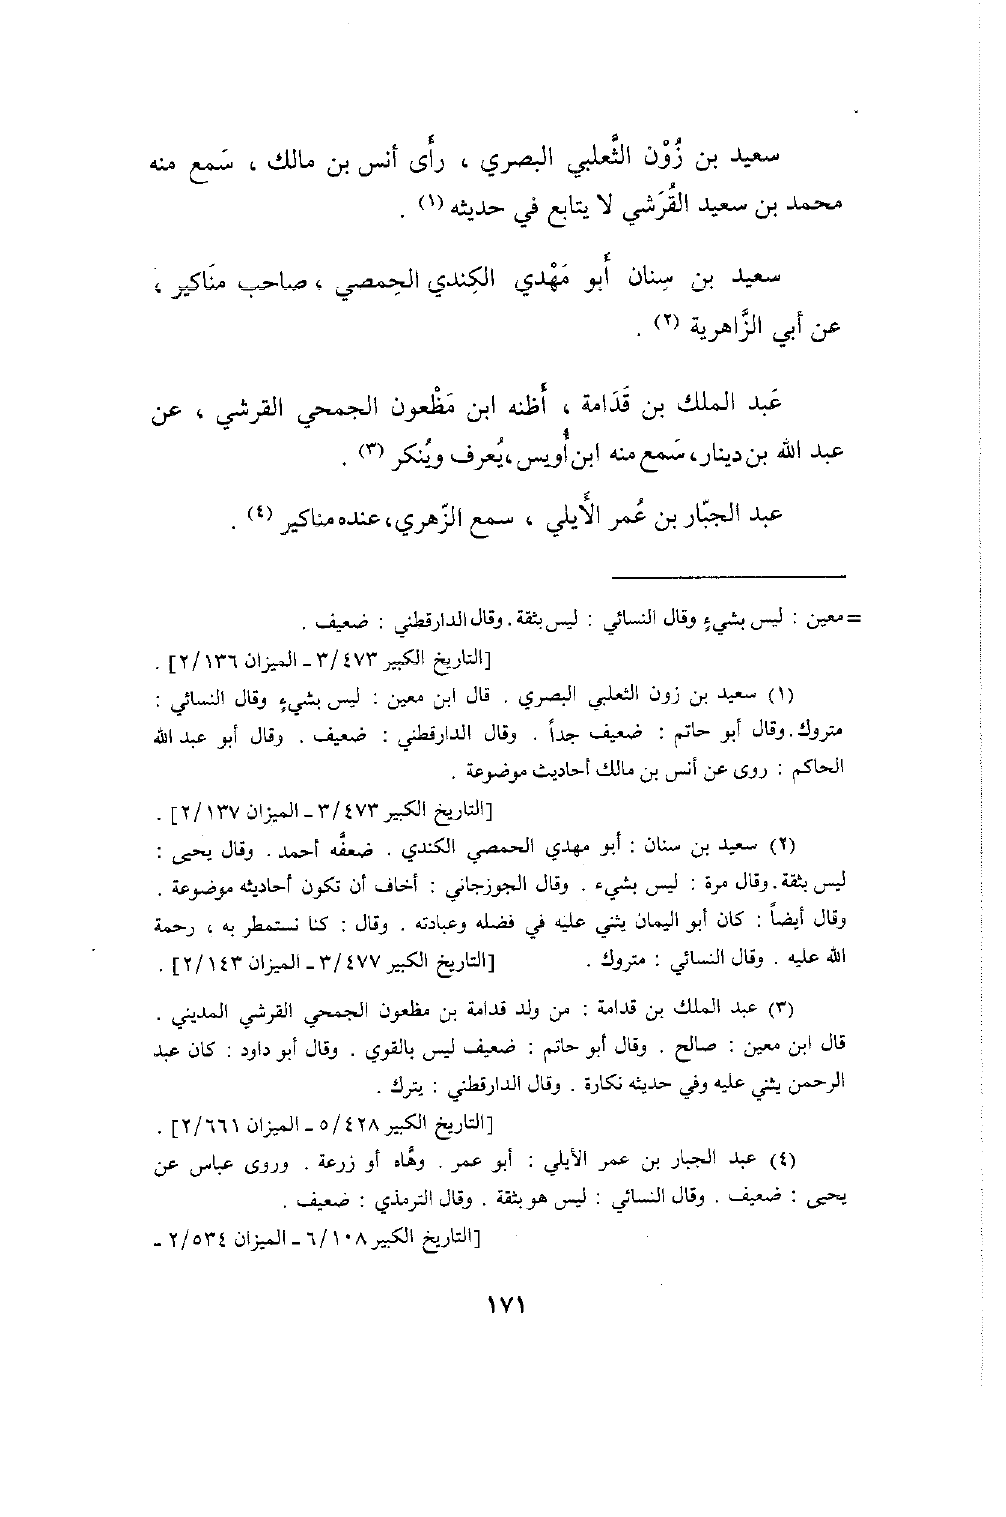 سعيد بن زُوْن الثَّعلبي البصري ، رأَى أنس بن مالك ، سَمع منه
محمد بن سعيد القُرَشي لا يتابع في حديثه (١) .
سعيد بن سِنان أَبو مَهْدي الكِندي الحِمصي ، صاحب منَاكير ،
عن أبي الزَّاهرية (٢) .
عَبد الملك بن قَدَامة ، أَظنه ابن مَظْعون الجمحي القرشي ، عن
عبد الله بن دينار، سَمع منه ابن أُويس، يُعرف ويُنكر (٣) .
عبد الجبّار بن عُمر الأَيلي ، سمع الزّهري، عنده مناكير (٤) .
= معين : ليس بشيءٍ وقال النسائي : ليس بثقة . وقال الدارقطني : ضعيف .
[التاريخ الكبير ٣/٤٧٣ ـ الميزان ٢/١٣٦] .
(١) سعيد بن زون الثعلبي البصري . قال ابن معين : ليس بشيءٍ وقال النسائي :
متروك . وقال أبو حاتم : ضعيف جداً . وقال الدارقطني : ضعيف . وقال أبو عبد الله
الحاكم : روى عن أنس بن مالك أحاديث موضوعة .
[التاريخ الكبير ٣/٤٧٣ ـ الميزان ٢/١٣٧] .
(٢) سعيد بن سنان : أبو مهدي الحمصي الكندي . ضعفَّه أحمد . وقال يحيى :
ليس بثقة . وقال مرة : ليس بشيء . وقال الجوزجاني : أخاف أن تكون أحاديثه موضوعة .
وقال أيضاً : كان أبو اليمان يثني عليه في فضله وعبادته . وقال : كنا نستمطر به ، رحمة
الله عليه . وقال النسائي : متروك . [التاريخ الكبير ٣/٤٧٧ ـ الميزان ٢/١٤٣] .
(٣) عبد الملك بن قدامة : من ولد قدامة بن مظعون الجمحي القرشي المديني .
قال ابن معين : صالح . وقال أبو حاتم : ضعيف ليس بالقوي . وقال أبو داود : كان عبد
الرحمن يثني عليه وفي حديثه نكارة . وقال الدارقطني : يترك .
[التاريخ الكبير ٥/٤٢٨ ـ الميزان ٢/٦٦١] .
(٤) عبد الجبار بن عمر الأيلي : أبو عمر . وهَّاه أو زرعة . وروى عباس عن
يحيى : ضعيف . وقال النسائي : ليس هو بثقة . وقال الترمذي : ضعيف .
[التاريخ الكبير ٦/١٠٨ ـ الميزان ٢/٥٣٤ ـ
١٧١